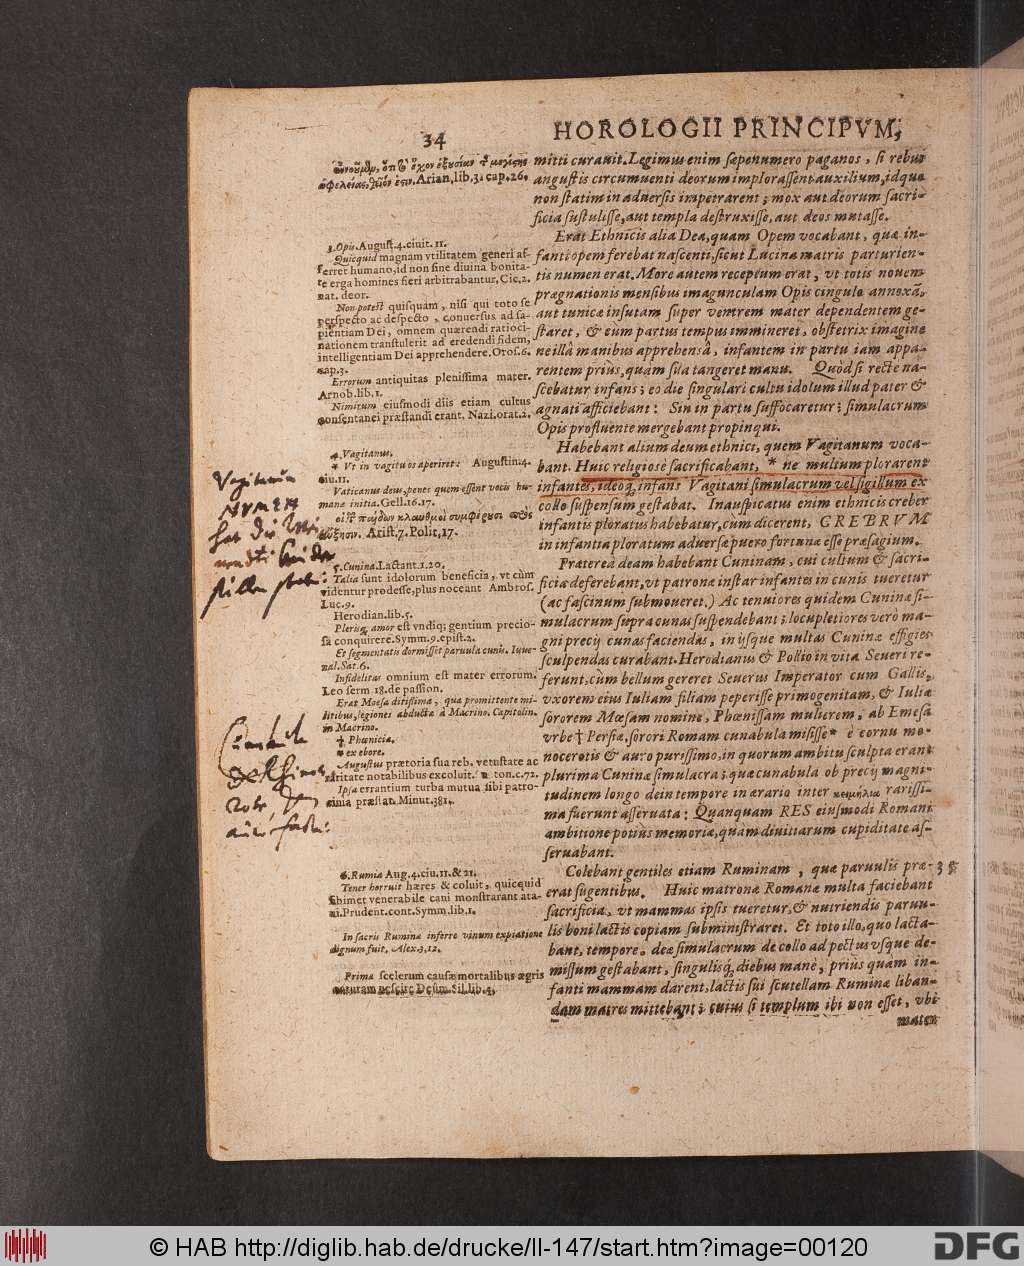 34
HOROLOGII PRINCIPVM,
mitti curauit. Legimus enim sæpenumero paganos, si rebus
angustis circumuenti deorum implorassent auxilium, idque
non statim in aduersis impetrarent; mox aut deorum sacri-
ficia sustulisse, aut templa destruxisse, aut deos mutasse.
Erat Ethnicis alia Dea, quam Opem vocabant, quæ in-
fanti opem ferebat nascenti, sicut Lucina matris parturien-
tis numen erat. More autem receptum erat, vt totis nouem
prægnationis mensibus imagunculam Opis cingulo annexã,
aut tunicæ insutam super ventrem mater dependentem ge-
staret, & cum partus tempus immineret, obstetrix imagine
ne illâ manibus apprehensâ, infantem in partu iam appa-
rentem prius, quam suâ tangeret manu. Quòd si recte na-
scebatur infans; eo die singulari cultu idolum illud pater &
agnati afficiebant: Sin in partu suffocaretur; simulacrum
Opis profluente mergebant propinqui.
Habebant alium deum ethnici, quem Vagitanum voca-
bant. Huic religiosè sacrificabant, * ne multum plorarent
infantes, ideoq; infans Vagitani simulacrum vel sigillum ex
collo suspensum gestabat. Inauspicatus enim ethnicis creber
infantis ploratus habebatur, cùm dicerent, CREBRVM
in infantia ploratum aduersæ puero fortunæ esse præsagium.
Præterea deam habebant Cuninam, cui cultum & sacri-
ficia deferebant, vt patronæ instar infantes in cunis tueretur
(ac fascinum submoueret.) Ac tenuiores quidem Cuninæ si-
mulacrum supra cunas suspendebant; locupletiores verò ma-
gni precij cunas faciendas, in ijsque multas Cuninæ effigies
sculpendas curabant. Herodianus & Pollio in vita Seueri re-
ferunt, cùm bellum gereret Seuerus Imperator cum Gallis,
vxorem eius Iuliam filiam peperisse primogenitam, & Iuliæ
sororem Mœsam nomine, Phœnissam mulierem, ab Emesa
vrbe † Persiæ, sorori Romam cunabula misisse * è cornu mo-
nocerotis & auro purissimo, in quorum ambitu sculpta erant
plurima Cuninæ simulacra; quæ cunabula ob precij magni-
tudinem longo dein tempore in ærario inter κειμήλια rarissi-
ma fuerunt asseruata: Quanquam RES eiusmodi Romani
ambitione potiùs memoriæ, quàm diuitiarum cupiditate as-
seruabant.
Colebant gentiles etiam Ruminam, quæ paruulis præ-
erat sugentibus. Huic matronæ Romanæ multa faciebant
sacrificia, vt mammas ipsis tueretur, & nutriendis paruu-
lis boni lactis copiam subministraret. Et toto illo, quo lacta-
bant, tempore, deæ simulacrum de collo ad pectus vsque de-
missum gestabant, singulisq; diebus manè, priùs quam in-
fanti mammam darent, lactis sui scutellam Ruminæ liban-
dam matres mittebant; cuius si templum ibi non esset, vbi
mater
Arian. lib. 3. cap. 26.
3. Opis. August. 4. ciuit. 11.
Quicquid magnam vtilitatem generi af-
ferret humano, id non sine diuina bonita-
te erga homines fieri arbitrabantur, Cic. 2.
nat. deor.
Non potest quisquam, nisi qui toto se
perspecto ac despecto, conuersus ad sa-
pientiam Dei, omnem quærendi ratioci-
nationem transtulerit ad credendi fidem,
intelligentiam Dei apprehendere. Oros. 6.
cap. 3.
Errorum antiquitas plenissima mater.
Arnob. lib. 1.
Nimirum eiusmodi diis etiam cultus
consentanei præstandi erant. Nazi. orat. 2.
4. Vagitanus.
* Vt in vagitu os aperiret: Augustin. 4.
ciu. 11.
Vaticanus deus, penes quem essent vocis hu-
manæ initia. Gell. 16. 17.
Arist. 7. Polit. 17.
5. Cunina. Lactant. 1. 20.
Talia sunt idolorum beneficia, vt cùm
videntur prodesse, plus noceant Ambros.
Luc. 9.
Herodian. lib. 5.
Plerisq; amor est vndiq; gentium precio-
sa conquirere. Symm. 9. epist. 2.
Et segmentatis dormisset paruula cunis. Iuue-
nal. Sat. 6.
Infidelitas omnium est mater errorum.
Leo serm 18. de passion.
Erat Moesa ditissima, qua promittente mi-
litibus, legiones abductæ à Macrino. Capitolin.
in Macrino.
† Phœnicia.
* ex ebore.
Augustus prætoria sua reb. vetustate ac
raritate notabilibus excoluit. Sueton. c. 72.
Ipsa errantium turba mutua sibi patro-
cinia præstat. Minut. 381.
6. Rumia Aug. 4. ciu. 11. & 21.
Tener horruit hæres & coluit, quicquid
sibimet venerabile cani monstrarant ata-
ui. Prudent. cont. Symm. lib. 1.
In sacris Ruminæ inferre vinum expiatione
dignum fuit. Alex. 3. 12.
Prima scelerum causæ mortalibus ægris
naturam nescire Deûm. Sil. lib. 4.
Vagitanũ
© HAB http://diglib.hab.de/drucke/ll-147/start.htm?image=00120
DFG